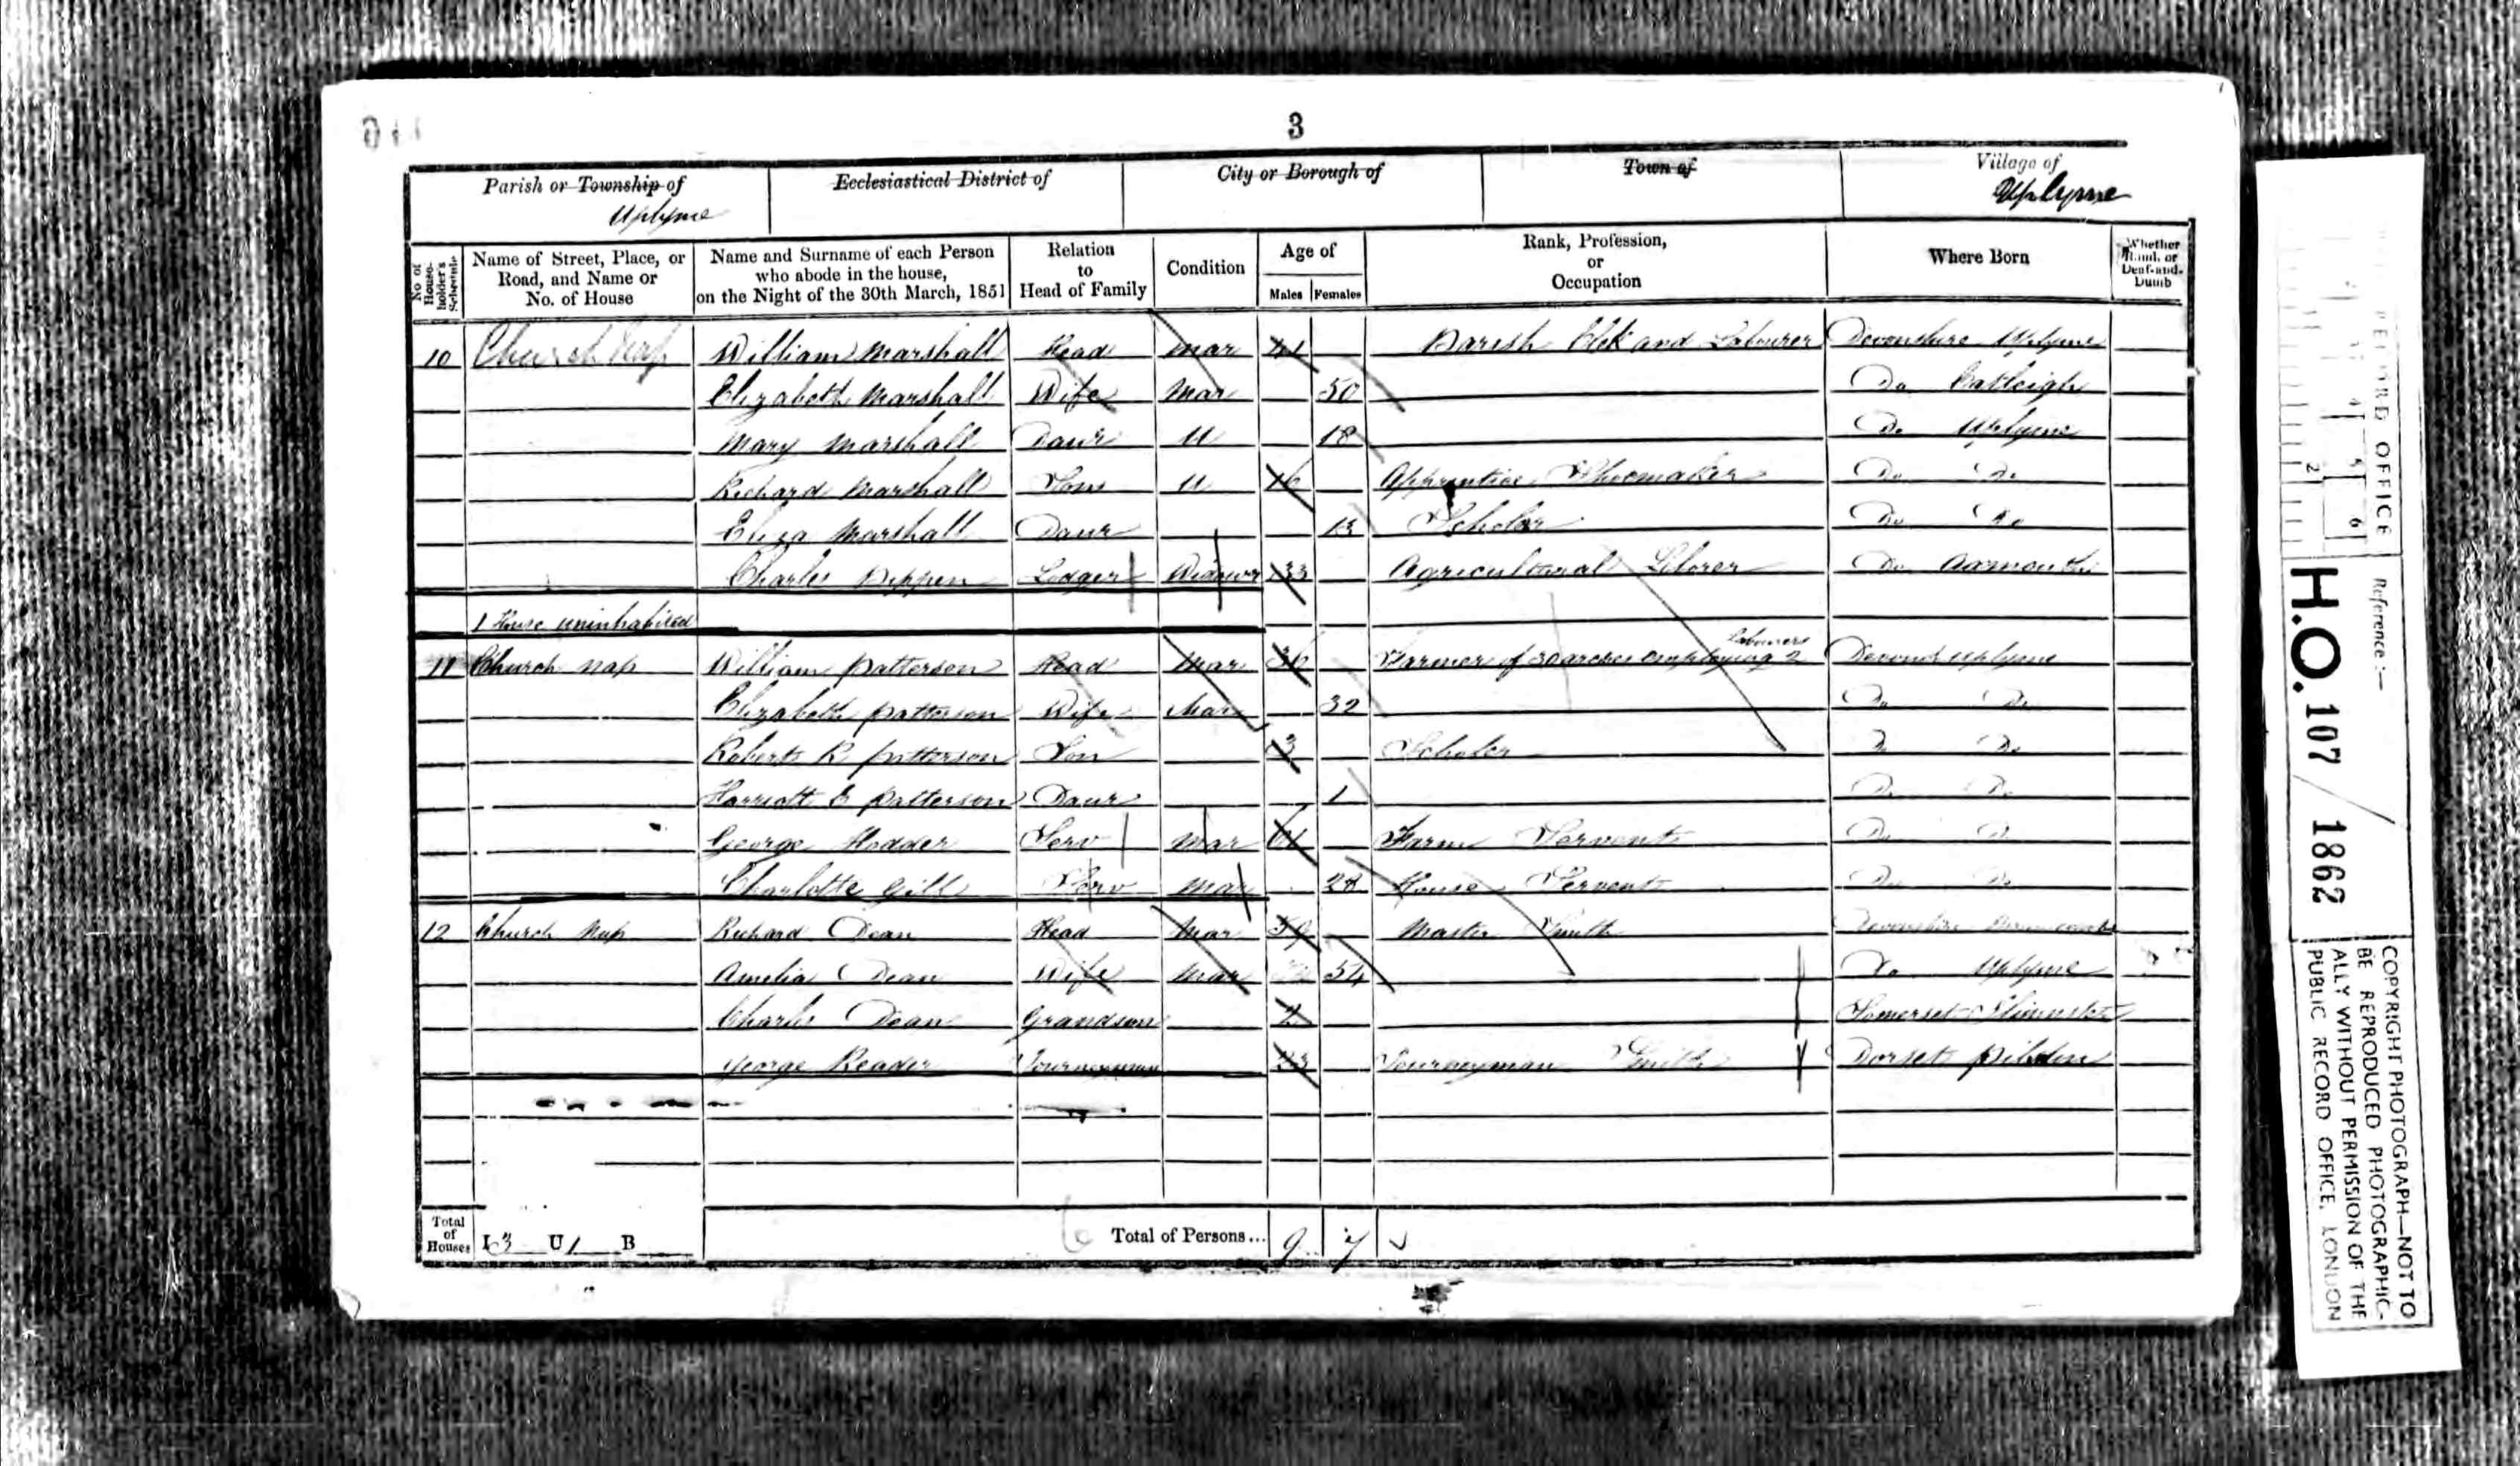 3
Parish or Township of Ecclesiastical District of City or Borough of Town of Village of
Uplyme Uplyme
No. of Householder's Schedule Name of Street, Place, or Road, and Name or No. of House Name and Surname of each Person who abode in the house, on the Night of the 30th March, 1851 Relation to Head of Family Condition Age of Males Females Rank, Profession, or Occupation Where Born Whether Blind, or Deaf-and-Dumb
10 Church Nap William Marshall Head Mar Parish Clek and Labourer Devonshire Uplyme
Elizabeth Marshall Wife Mar 50 Do Catleigh
Mary Marshall Daur U 18 Do Uplyme
Richard Marshall Son U 16 Apprentice Shoemaker Do Do
Eliza Marshall Daur 13 Scholar Do Do
Charles Pippen Lodger Widower 33 Agricultural Laborer Do Axmouth
1 House uninhabited
11 Church Nap William Patterson Head Mar 36 Farmer of 30 arcres employing 2 Labourers Devond Uplyme
Elizabeth Patterson Wife Mar 32 Do Do
Robert R Patterson Son 3 Scholar Do Do
Harriott E Patterson Daur 1 Do Do
George Hodder Serv Mar 61 Farm Servent Do Do
Charlotte Gill Serv Mar 28 House Servent Do Do
12 Church Nap Richard Dean Head Mar 59 Master Smith Devonshire
Amelia Dean Wife Mar 54 Do Uplyme
Charles Dean Grandson 2 Somerset
George Reader Journeyman 23 Journeyman Smith Dorset
Total of Houses I 3 U 1 B Total of Persons... 9 7
RECORD OFFICE
1 2 4 5 6
Reference:—
H.O. 107 / 1862
COPYRIGHT PHOTOGRAPH—NOT TO
BE REPRODUCED PHOTOGRAPHIC-
ALLY WITHOUT PERMISSION OF THE
PUBLIC RECORD OFFICE, LONDON